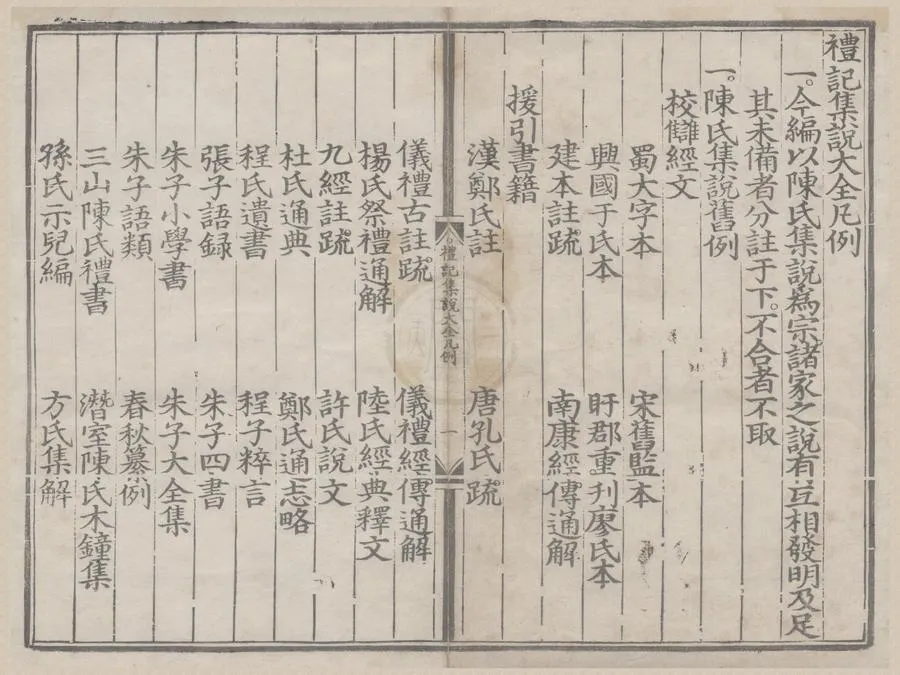 禮記集說大全凡例
一。今編以陳氏集說爲宗諸家之說有互相發明及足
其未備者分註于下。不合者不取
一。陳氏集說舊例
校讎經文
蜀大字本 宋舊監本
興國于氏本 盱郡重刋廖氏本
建本註䟽 南康經傳通解
援引書籍
漢鄭氏註 唐孔氏䟽
禮記集說大全凡例 一
儀禮古註䟽 儀禮經傳通解
楊氏祭禮通解 陸氏經典釋文
九經註䟽 許氏說文
杜氏通典 鄭氏通志略
程氏遺書 程子粹言
張子語録 朱子四書
朱子小學書 朱子大全集
朱子語類 春秋纂例
三山陳氏禮書 潛室陳氏木鐘集
孫氏示兒編 方氏集解